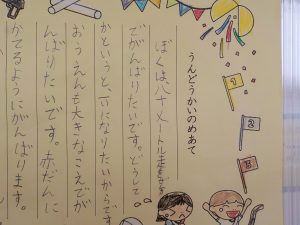 うんどうかいのめあて
ぼくは、八十メートル走をさい
でがんばりたいです。どうして
かというと、一いになりたいからです
おうえんも大きなこえでが
んばりたいです。赤だんに
かてるようにがんばります。
1
2
3